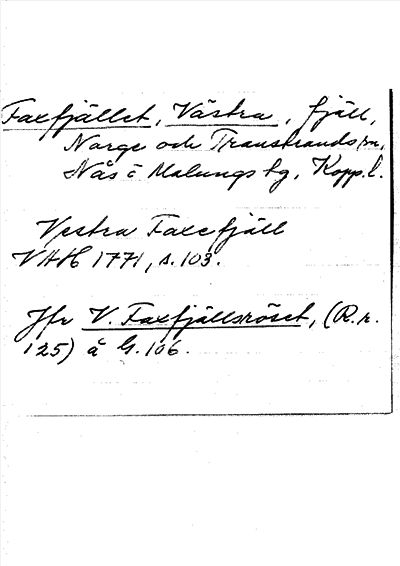 Faxfjället, Västra, fjäll,
Norge och Transtrands sn,
Nås o Malungs tg, Kopp. l.
Vestra Faxefjäll
VHH 1771, s. 103.
Jfr V. Faxfjällsröset, (R.r.
125) å G. 106.